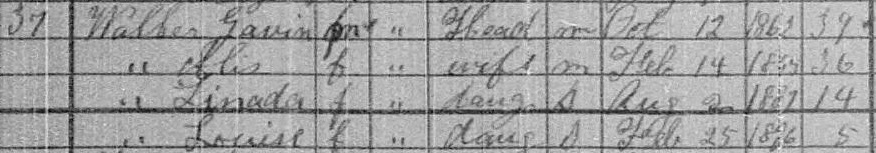 37 Walker Gavin m " Head m Oct 12 1862 39
" f " wife m Feb 14 36
" Linada f " daug S Aug 2 1887 14
" Louise f " daug S Feb 25 1896 5